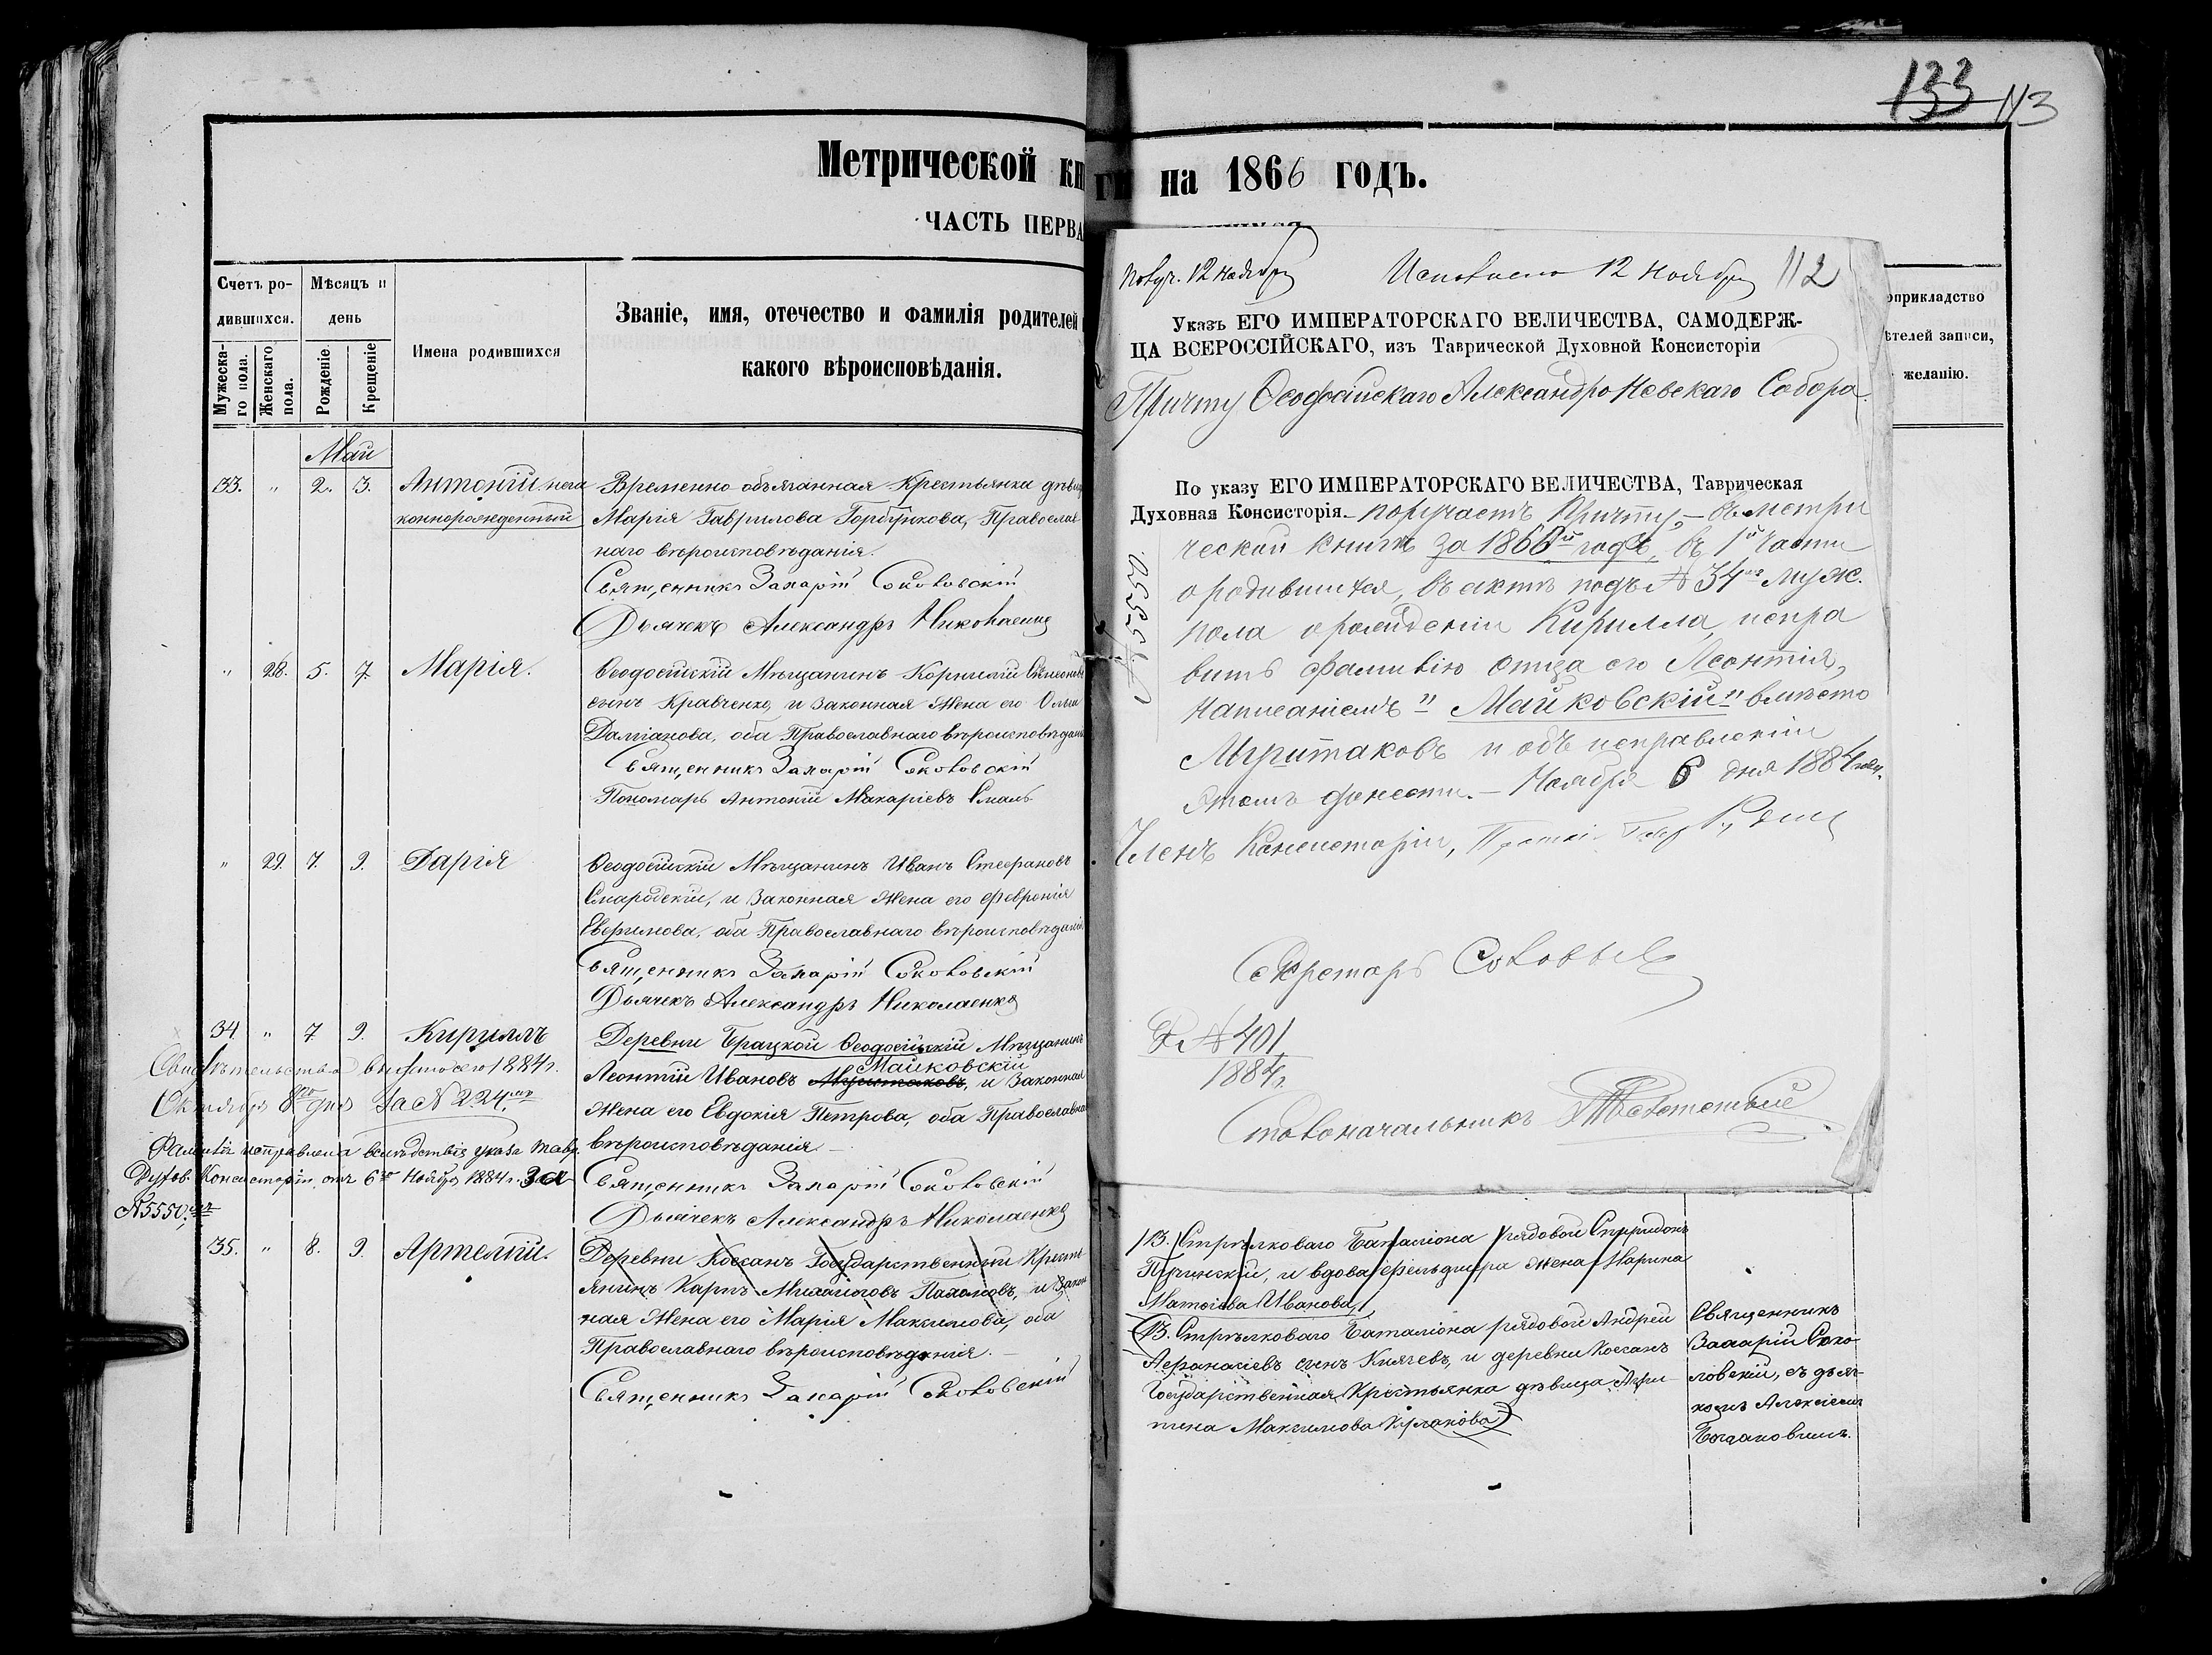 133 113
Метрической кн
ЧАСТЬ ПЕРВА
Счетъ ро-
дившихся.
Мѣсяцъ и
день
Мужеска-
го пола.
Женскаго
пола.
Рожденіе
Крещеніе
Имена родившихся
Званіе, имя, отечество и фамилія родителей
какого вѣроисповѣданія.
Май
33. " 2. 3. Антоній неза
коннорожденный
Временно-обязанная Крестьянка дѣвица
Марія Гаврилова Горбункова, Православ
наго вѣроисповѣданія.
Священникъ Захарій Соколовскій
Дьячекъ Александръ Николаенко
" 28. 5. 7. Марія.
Ѳеодосійскій Мѣщанинъ Корнилій
сынъ Кравченко, и Законная Жена его Ольга
Даміанова, оба Православнаго вѣроисповѣдан
Священникъ Захарій Соколовскій
Пономарь Антоній Макаріевъ
" 29. 7. 9. Дарія
Ѳеодосійскій Мѣщанинъ Иванъ Стефановъ
и Законная Жена его Февронія
Евфимова, оба Православнаго вѣроисповѣданія
Священникъ Захарій Соколовскій
Дьячекъ Александръ Николаенко
34. " 7. 9. Кириллъ
Деревни Брацкой Ѳеодосійскій Мѣщанинъ
Майковскій
Леонтій Ивановъ и Законная
Жена его Евдокія Петрова, оба Православна
вѣроисповѣданія. —
Священникъ Захарій Соколовскій
Дьячекъ Александръ Николаенко
Свидѣтельство выдано 1884 г.
Октября 8го дня За № 224мъ
Фамилія исправлена вслѣдствіе указа Тавр.
Духов. Консисторіи отъ 6го Ноября 1884 г. За
№ 5550мъ
35. " 8. 9. Артемій.
Деревни Коксанъ Государственный Кресть
янинъ Карпъ Пахомовъ, и Закон
ная Жена его Марія Максимова, оба
Православнаго вѣроисповѣданія. —
Священникъ Захарій Соколовскій
ги на 1866 годъ.
оприкладство
ѣтелей записи,
желанію.
Получ. 12 Ноября Исполнено 12 Ноября 112
Указъ ЕГО ИМПЕРАТОРСКАГО ВЕЛИЧЕСТВА, САМОДЕРЖ-
ЦА ВСЕРОССІЙСКАГО, изъ Таврической Духовной Консисторіи
Причту Ѳеодосійскаго Александро Невскаго Собора.
По указу ЕГО ИМПЕРАТОРСКАГО ВЕЛИЧЕСТВА, Таврическая
Духовная Консисторія.— поручаетъ Причту,— въ метри
ческой книгѣ за 1866й годъ, въ 1й части
о родившихся, въ актѣ подъ № 34мъ муж.
пола о рожденіи Кирилла, испра
вить фамилію отца его Леонтія,
написаніемъ "Майковскій" вмѣсто
и объ исправленіи
этомъ донести.— Ноября 6 дня 1884 года.
Членъ Консисторіи,
№ 5550
Секретарь Соловьев
№ 401
1884 г.
Столоначальникъ
13. Стрѣлковаго Баталіона рядовой Спиридонъ
и вдова фельдшера жена Марина
Иванова,
(13. Стрѣлковаго Баталіона рядовой Андрей
Аѳанасіевъ сынъ Князевъ, и деревни Коксанъ
Государственная Крестьянка дѣвица Агри-
пина Максимова
Священникъ
Захарій Соко-
ловскій, съ дьяч-
комъ Алексіемъ